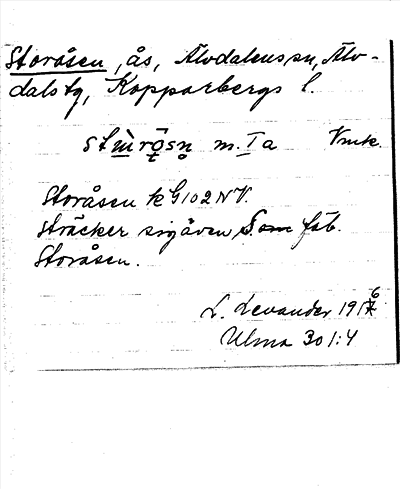 Storåsen, ås, Älvdalens sn, Älv-
dals tg, Kopparbergs l.
m. Ia Vmk.
Storåsen k G102NV.
Sträcker sig även, Som fäb.
Storåsen.
L. Levander 1916
Ulma 301:4